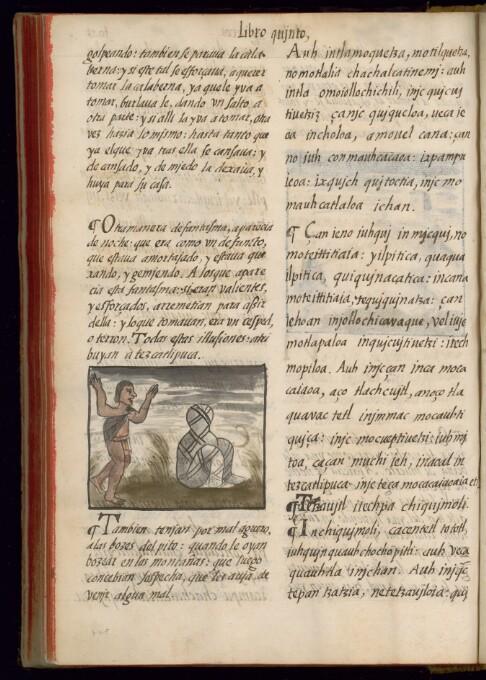 Libro quinto,
golpeando: tambien se paraua la cala
berna: y si este tal se esforçaua, a querer
tomar la calaberna, ya que le yva a
tomar, burlaua le, dando vn salto a
otra parte: y si alli la yva a tomar, otra
vez hazia lo mismo: hasta tanto que
ya el que yva tras ella se cansaua: y
de cansado, y de miedo la dexaua, y
huya para su casa.
¶ Otra manera de fantasma, aparecia
de noche: que era como vn defuncto,
que estaua amortajado, y estaua que
xando, y gemjendo. A los que apare
cia esta fantasma: si eran valientes,
y esforçados, arremetian para asir
della: y lo que tomauan, era vn cesped,
o terron. Todas estas illusiones: atri
buyan a tezcatlipuca.
¶ Tambien tenjan por mal aguero,
a las bozes del pito: quando le oyan
bozear en las montañas: que luego
concebian sospecha, que les auja, de
venjr algun mal.
Auh intlamoquetza, motilquetza,
no motlalia chachalcatinemj: auh
intla omoiollochichili, inje qujcuj
tiuetziz çanje qujqueloa, veca ie
ca incholoa, amo vel cana: çan
no iuh conmauhcacaoa: ixpampa
ieoa: ixqujch qujtoctia, inje mo
mauhcatlaloa ichan.
¶ Çan ieno iuhquj in mjcquj, no
moteittitiaia: yilpitica, quaqua
ilpitica, quiqujnacatica: incana
moteittitiaia, tequjqujnatza: çan
iehoan injollochicavaque, vel iuje
motlapaloa inqujcujtiuetzi: itech
mopiloa. Auh injc çan inca moca
caiaoa, aço tlachcujtl, anoço tla
quavac tetl injmmac mocauhti
qujça: inje mocueptiuetzi: iuh mj
toa, ca çan muchi ieh, inaoal in
tezcatlipuca inje teca mocacaiaoaia etc.
¶ Tetzaujtl itechpa chiqujmoli.
¶ In chiqujmoli, ca centetl tototl,
iuhqujn quauhchochopitli: auh veca
quauhtla injchan. Auh injquac
tepan tzatzia, netetzaujlota: quj